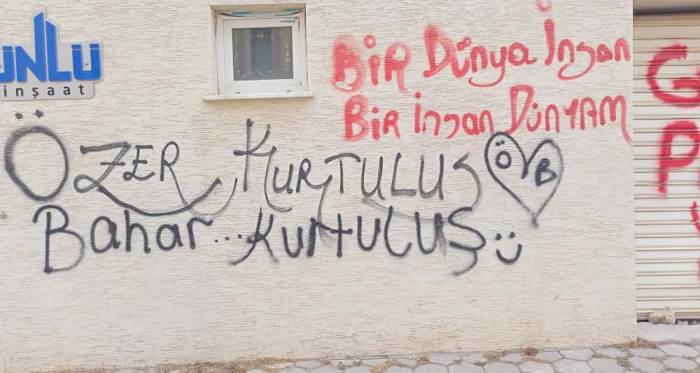 ÜNLÜ
inşaat
BİR Dünya İnsan
BİR İnsan DÜNYAM
ÖZER KURTULUŞ Ö B
Bahar... KURTULUŞ